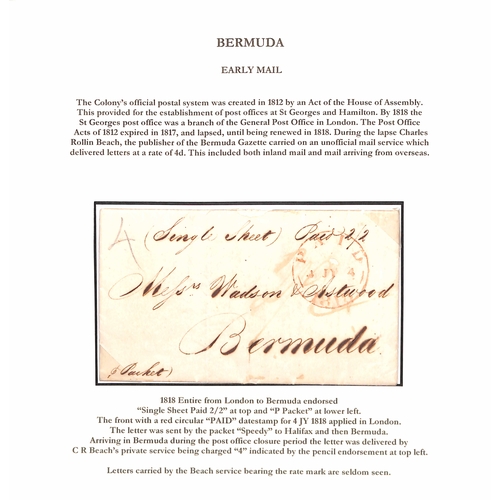 BERMUDA
EARLY MAIL
The Colony's official postal system was created in 1812 by an Act of the House of Assembly.
This provided for the establishment of post offices at St Georges and Hamilton. By 1818 the
St Georges post office was a branch of the General Post Office in London. The Post Office
Acts of 1812 expired in 1817, and lapsed, until being renewed in 1818. During the lapse Charles
Rollin Beach, the publisher of the Bermuda Gazette carried on an unofficial mail service which
delivered letters at a rate of 4d. This included both inland mail and mail arriving from overseas.
4 (Single Sheet) Paid 2/2
PAID
4 JY 4
Messrs Wadson & Astwood
Bermuda.
P Packet)
1818 Entire from London to Bermuda endorsed
"Single Sheet Paid 2/2" at top and "P Packet" at lower left.
The front with a red circular "PAID" datestamp for 4 JY 1818 applied in London.
The letter was sent by the packet "Speedy" to Halifax and then Bermuda.
Arriving in Bermuda during the post office closure period the letter was delivered by
C R Beach's private service being charged "4" indicated by the pencil endorsement at top left.
Letters carried by the Beach service bearing the rate mark are seldom seen.